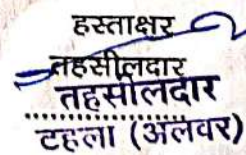 हस्ताक्षर
तहसीलदार
तहसीलदार
टहला (अलवर)